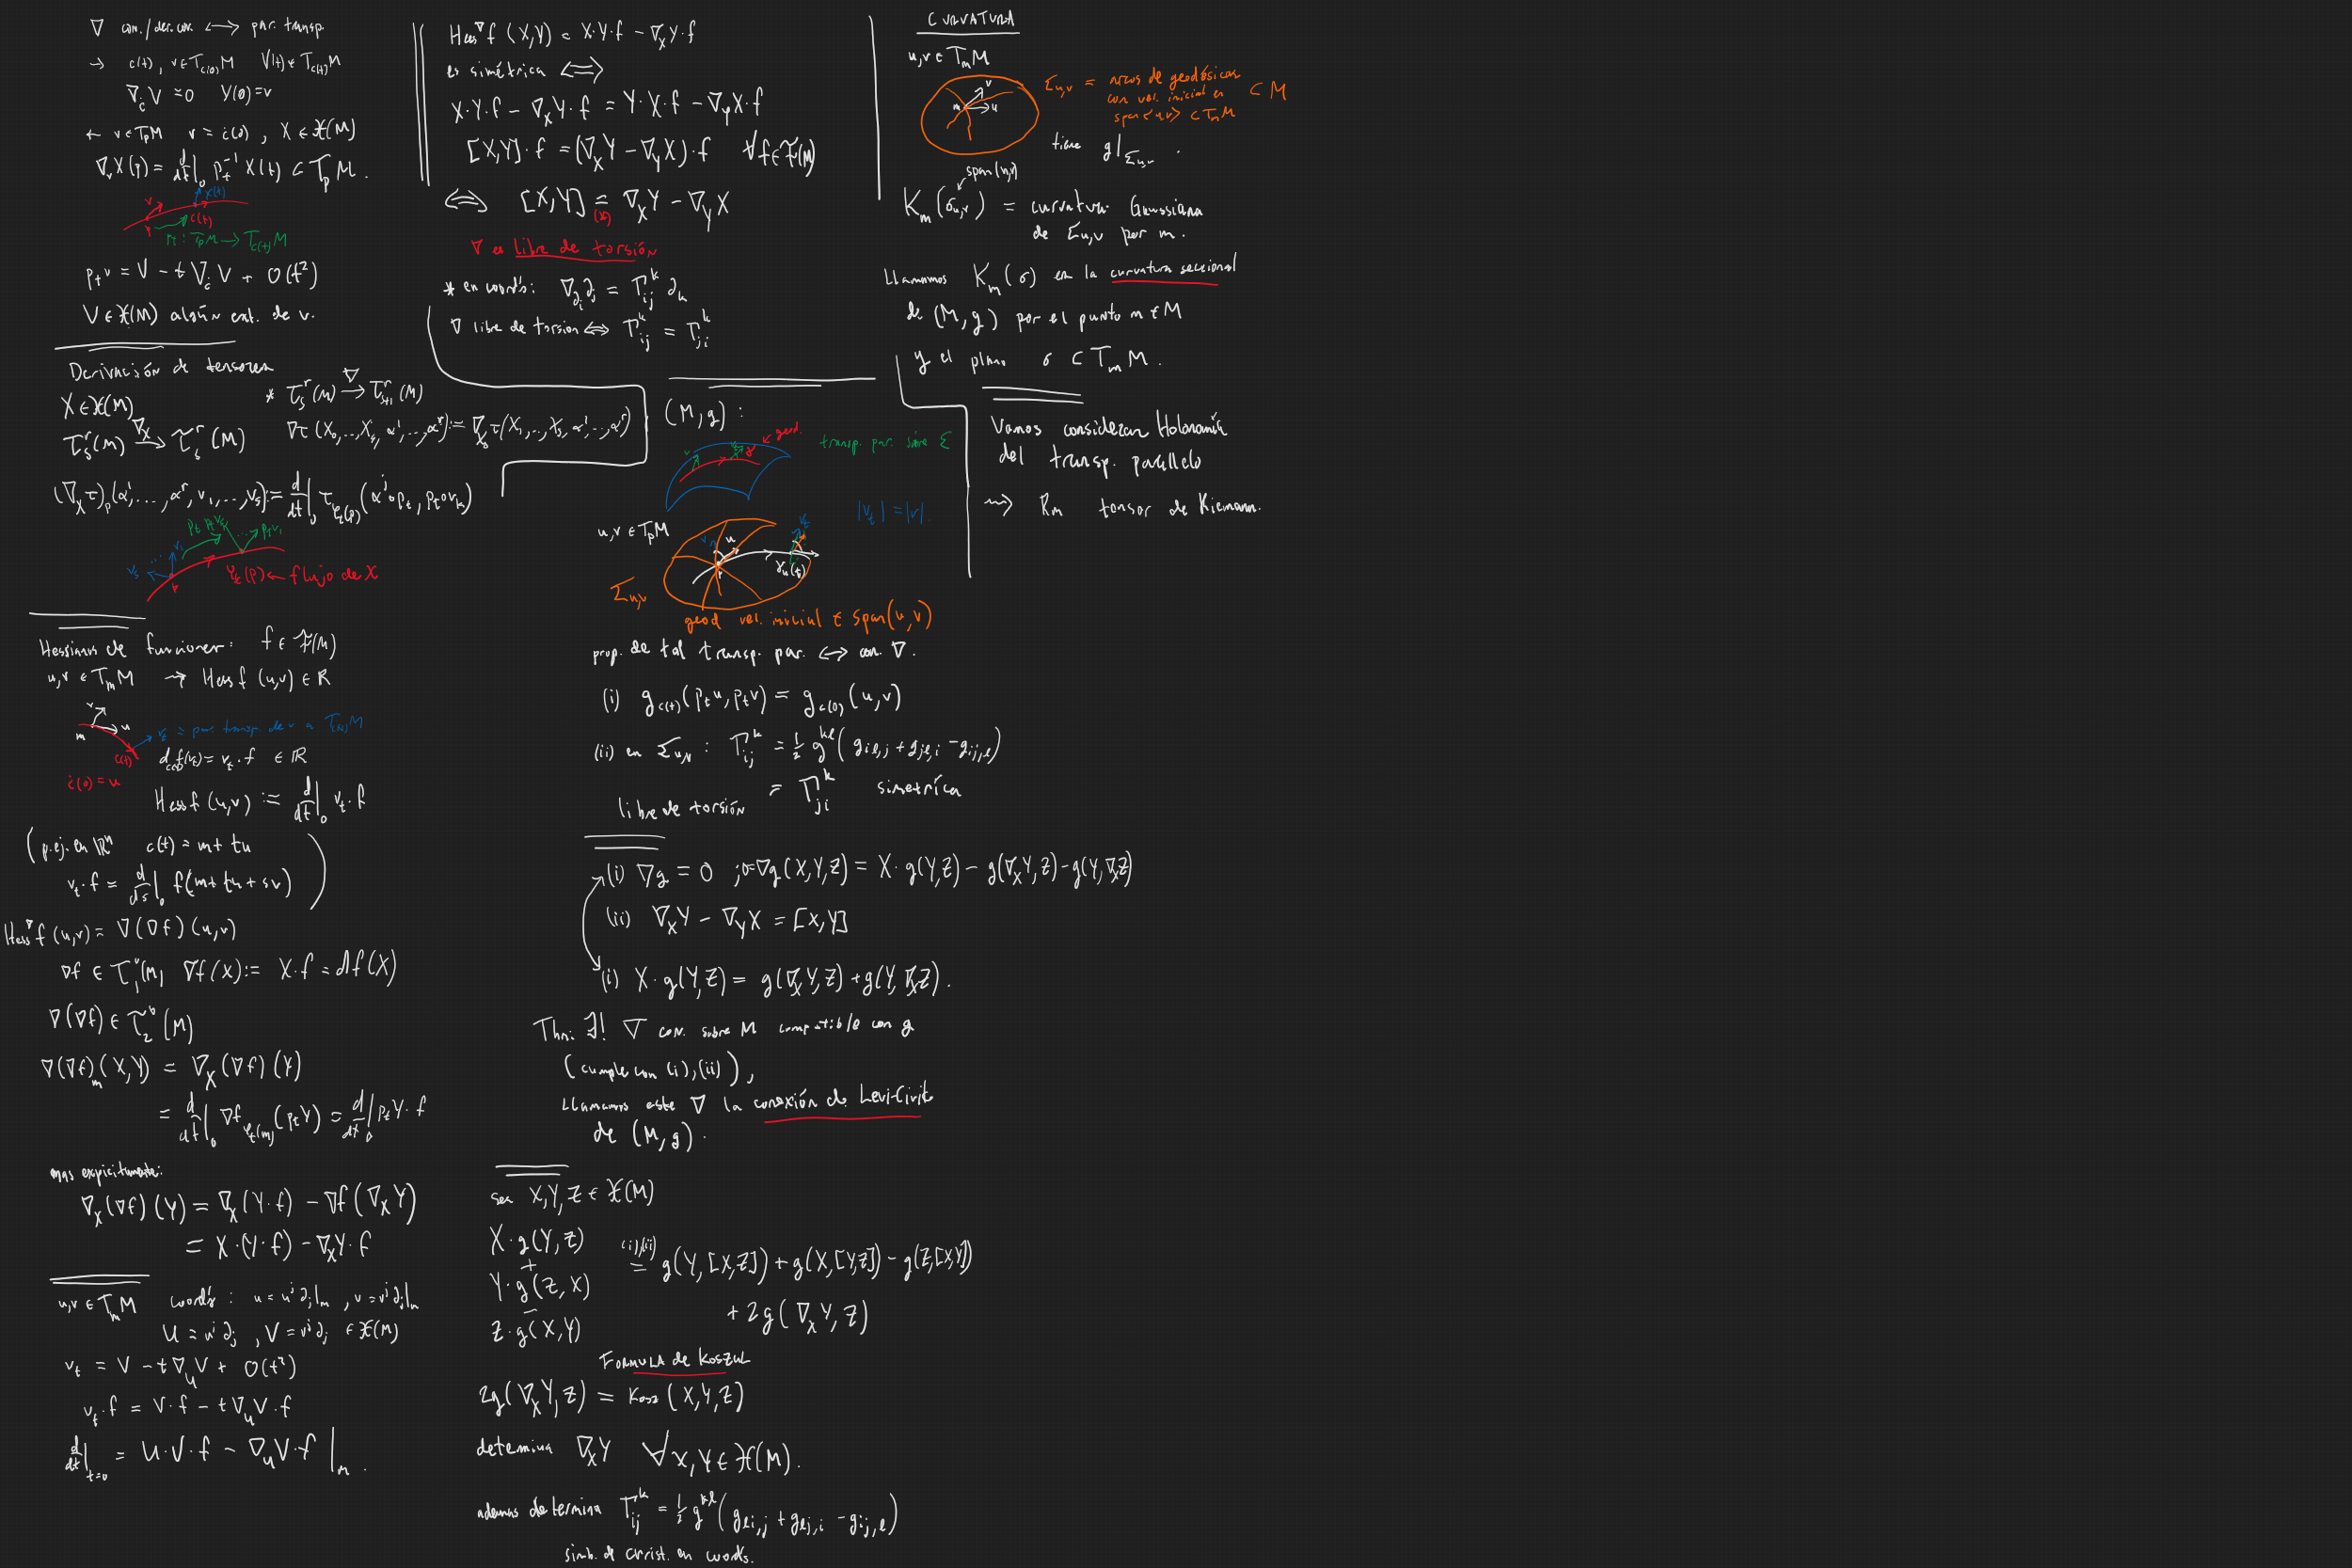 ∇ con./der.cov. ⟷ par. transp.
→ c(t), v ∈ T_{c(0)}M V(t) ∈ T_{c(t)}M
∇_ċ V = 0 V(0) = v
← v ∈ T_pM v = ċ(0), X ∈ 𝔛(M)
∇_v X(p) = d/dt|_0 p_t^{-1} X(t) ∈ T_pM.
v X(t)
c(t)
p_t : T_pM → T_{c(t)}M
p_t v = V − t∇_ċ V + O(t²)
V ∈ 𝔛(M) algún ext. de v.
Derivación de tensores
X ∈ 𝔛(M)
τ_s^r(M) —∇_X→ τ_s^r(M)
* τ_s^r(M) —∇→ τ_{s+1}^r(M)
∇τ(X_0,..,X_s, α¹,..,α^r) := ∇_{X_0}τ(X_1,..,X_s, α¹,..,α^r)
(∇_Xτ)_p(α¹,...,α^r, v_1,..,v_s) := d/dt|_0 τ_{φ_t(p)}(α^j∘p_t, p_t∘v_k)
v_s ... v_1 p_t p_t v_s ... p_t v_1
p
φ_t(p) ← flujo de X
Hessianos de funciones: f ∈ F(M)
u,v ∈ T_mM → Hess f (u,v) ∈ R
v u m
v_t = par. transp. de v a T_{c(t)}M
c(t)
ċ(0) = u
d_{c(t)}f(v_t) = v_t·f ∈ R
Hess f (u,v) := d/dt|_0 v_t·f
(p.ej. en Rⁿ c(t) = m + tu
v_t·f = d/ds|_0 f(m + tu + sv))
Hess^∇ f (u,v) = ∇(∇f)(u,v)
∇f ∈ τ_1^0(M) ∇f(X) := X·f = df(X)
∇(∇f) ∈ τ_2^0(M)
∇(∇f)_m(X,Y) = ∇_X(∇f)(Y)
= d/dt|_0 ∇f_{φ_t(m)}(p_t Y) = d/dt|_0 p_t Y·f
mas expicitamente:
∇_X(∇f)(Y) = ∇_X(Y·f) − ∇f(∇_X Y)
= X·(Y·f) − ∇_X Y·f
u,v ∈ T_mM coords: u = u^j ∂_j|_m, v = v^j ∂_j|_m
U = u^j ∂_j, V = v^j ∂_j ∈ 𝔛(M)
v_t = V − t∇_U V + O(t²)
v_t·f = V·f − t∇_U V·f
d/dt|_{t=0} = U·V·f − ∇_U V·f |_m.
Hess^∇ f (X,Y) = X·Y·f − ∇_X Y·f
es simétrica ⟺
X·Y·f − ∇_X Y·f = Y·X·f − ∇_Y X·f
[X,Y]·f = (∇_X Y − ∇_Y X)·f ∀f ∈ F(M)
⟺ [X,Y] = (*) ∇_X Y − ∇_Y X
∇ es libre de torsión
* en coords: ∇_{∂_i}∂_j = Γ_ij^k ∂_k
∇ libre de torsion ⟺ Γ_ij^k = Γ_ji^k
(M,g):
v v_t γ ← geod.
transp. par. sobre Σ
|v_t| = |v|
u,v ∈ T_pM
v u v_t
p γ_u(t)
Σ_{u,v}
geod vel. inicial ∈ Span(u,v)
prop. de tal transp. par. ⟷ con. ∇.
(i) g_{c(t)}(p_t u, p_t v) = g_{c(0)}(u,v)
(ii) en Σ_{u,v} : Γ_ij^k = ½ g^{kl}(g_{il,j} + g_{jl,i} − g_{ij,l})
= Γ_ji^k simetríca
libre de torsión
(i) ∇g = 0 ; 0 = ∇g(X,Y,Z) = X·g(Y,Z) − g(∇_X Y,Z) − g(Y,∇_X Z)
(ii) ∇_X Y − ∇_Y X = [X,Y]
(i) X·g(Y,Z) = g(∇_X Y,Z) + g(Y,∇_X Z).
Thm: ∃! ∇ con. sobre M compatible con g
(cumple con (i),(ii)),
Llamamos este ∇ la conexión de Levi-Civita
de (M,g).
sea X,Y,Z ∈ 𝔛(M)
X·g(Y,Z)
+
Y·g(Z,X)
−
Z·g(X,Y)
(i),(ii)
= g(Y,[X,Z]) + g(X,[Y,Z]) − g(Z,[X,Y])
+ 2g(∇_X Y, Z)
FORMULA de Koszul
2g(∇_X Y,Z) = Kosz(X,Y,Z)
determina ∇_X Y ∀X,Y ∈ 𝔛(M).
ademas determina Γ_ij^k = ½ g^{kl}(g_{li,j} + g_{lj,i} − g_{ij,l})
simb. de christ. en coords.
CURVATURA
u,v ∈ T_mM
v m u
Σ_{u,v} = arcos de geodésicas
con vel. inicial en ⊂ M
span<u,v> ⊂ T_mM
tiene g|_{Σ_{u,v}}.
span(u,v)
K_m(σ_{u,v}) = curvatura Gaussiana
de Σ_{u,v} por m.
Llamamos K_m(σ) es la curvatura seccional
de (M,g) por el punto m ∈ M
y el plano σ ⊂ T_mM.
Vamos considerar Holonomía
del transp. parallelo
⇝ R_m tensor de Riemann.